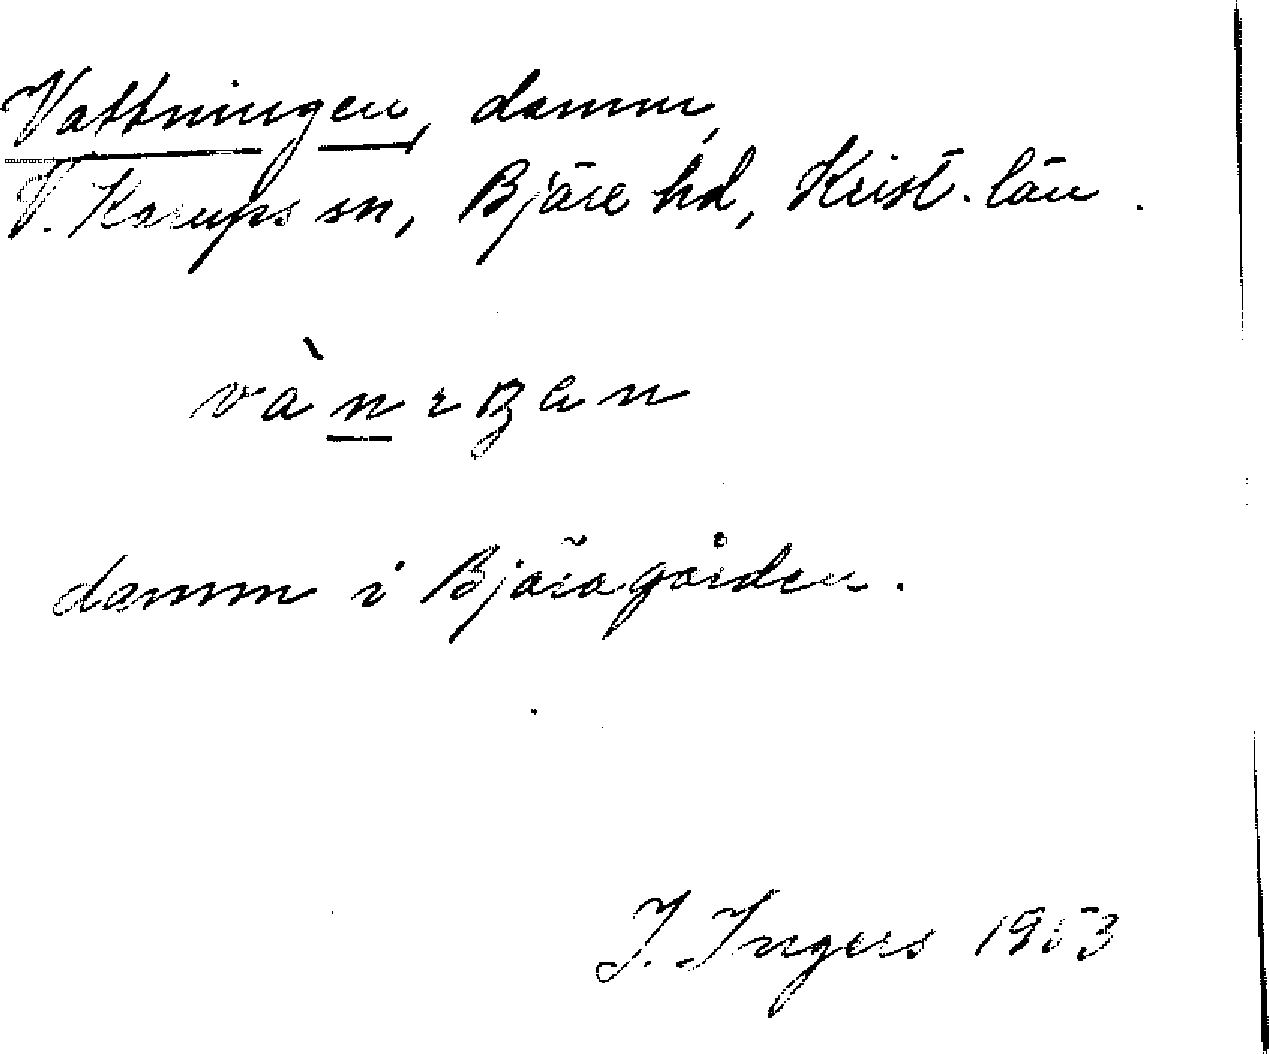 Vattningen, damm,
V. Karups sn, Bjäre hd, Krist. län.
damm i Bjäragården.
I. Ingers 1953